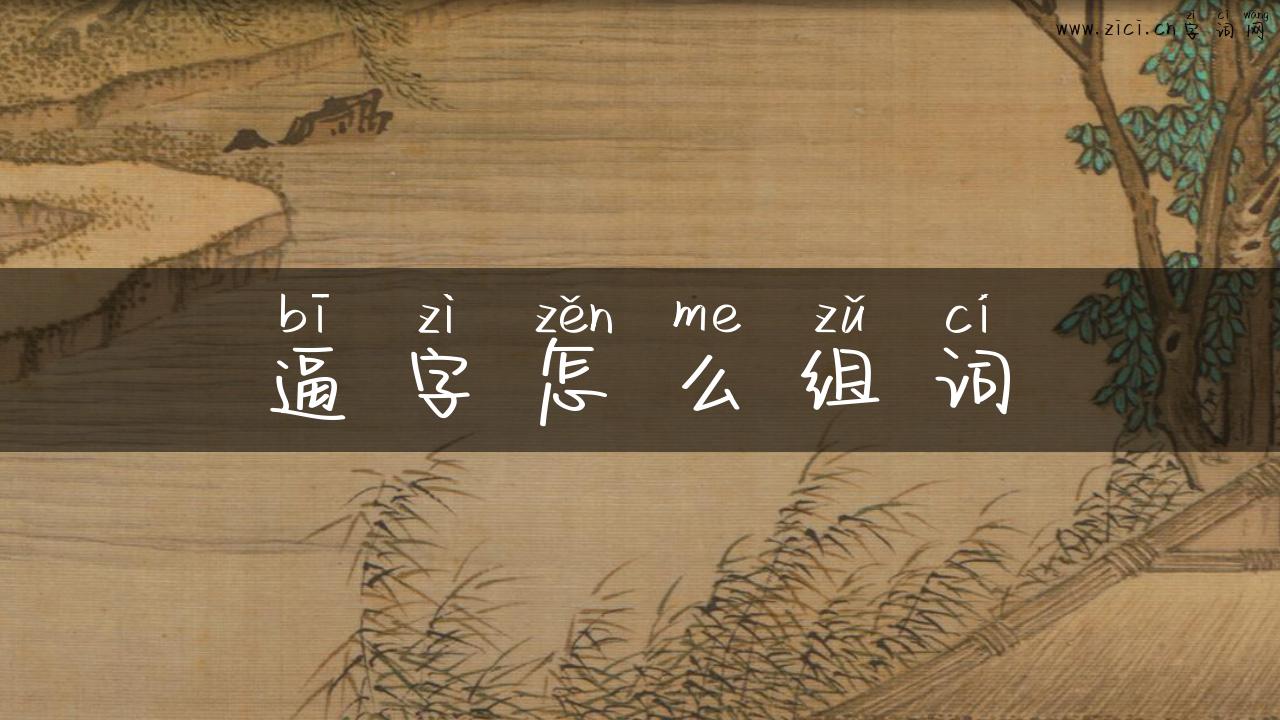 zì cí wǎng
www.zici.cn字词网
bī zì zěn me zǔ cí
逼字怎么组词